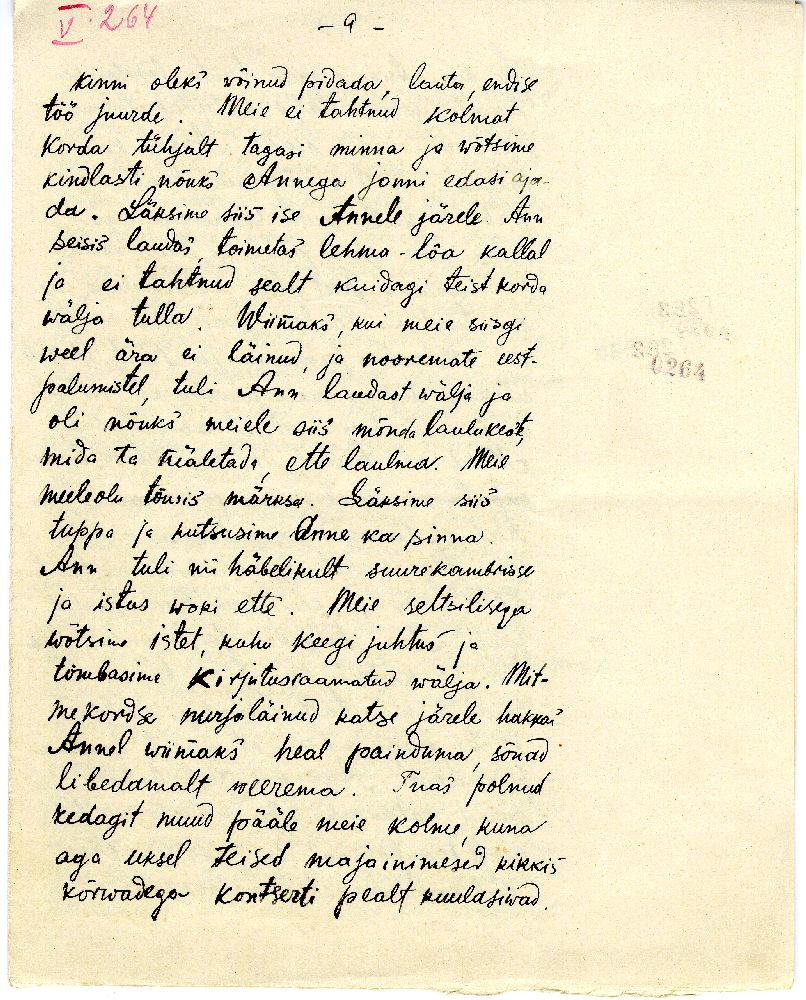 V. 264
- 9 -
kinni oleks wõinud pidada, lauta, endise
töö juurde. Meie ei tahtnud kolmat
korda tühjalt tagasi minna ja wõtsime
kindlasti nõuks Annega jonni edasi aja-
da. Läksime siis ise Annele järele. Ann
seisis laudas, toimetas lehma-lõa kallal
ja ei tahtnud sealt kuidagi teist korda
wälja tulla. Wiimaks, kui meie siisgi
weel ära ei läinud, ja nooremate eest-
palumistel, tuli Ann laudast wälja ja
oli nõuks meiele siis mõnda laulukest,
mida ta mäletada, ette laulma. Meie
meeleolu tõusis märksa. Läksime siis
tuppa ja kutsusime Anne ka sinna.
Ann tuli nii häbelikult suurekambrisse
ja istus woki ette. Meie seltsilisega
wõtsime istet, kuhu keegi juhtus ja
tõmbasime kirjutusraamatud wälja. Mit-
mekordse nurjaläinud katse järele hakkas
Annel wiimaks heal painduma, sõnad
libedamalt weerema. Tuas polnud
kedagit muud pääle meie kolme, kuna
aga uksel teised majainimesed kikkis
kõrwadega kontserti pealt kuulasiwad.
0264